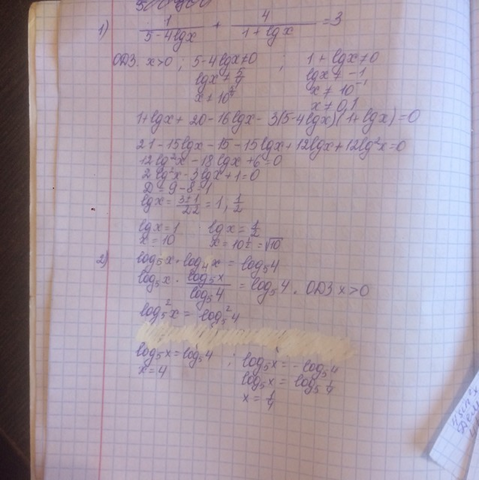 1) 1/(5-4lgx) + 4/(1+lgx) = 3
ОДЗ: x>0 ; 5-4lgx≠0 ; 1+lgx≠0
lgx≠5/4 lgx≠-1
x≠10^(5/4) x≠10^(-1)
x≠0,1
1+lgx+20-16lgx-3(5-4lgx)(1+lgx)=0
21-15lgx-15-15lgx+12lgx+12lg²x=0
12lg²x-18lgx+6=0
2lg²x-3lgx+1=0
D=9-8=1
lgx=(3±1)/(2·2)=1; 1/2
lgx=1 lgx=1/2
x=10 x=10^(1/2)=√10
2) log₅x·log₄x=log₅4
log₅x·(log₅x)/(log₅4)=log₅4. ОДЗ x>0
log₅²x=log₅²4
log₅x=log₅4 ; log₅x=-log₅4
x=4 log₅x=log₅1/4
x=1/4